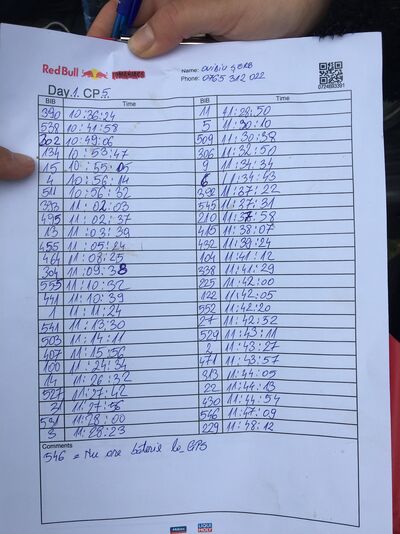 Red Bull ROMANIACS
Name: OVIDIU SERB
Phone: 0765 312 022
0724693391
Day 1. CP5.
BIB Time BIB Time
390 10:36:24 11 11:28:50
538 10:41:58 5 11:30:10
202 10:49:06 509 11:30:38
134 10:53:47 306 11:32:50
15 10:55:05 9 11:34:34
4 10:56:14 6 11:34:43
511 10:56:32 11:37:22
393 11:02:03 545 11:37:31
495 11:02:37 210 11:37:58
13 11:03:39 415 11:38:07
455 11:05:24 432 11:39:24
464 11:08:25 104 11:41:12
304 11:09:38 338 11:41:29
555 11:10:32 225 11:42:00
441 11:10:39 122 11:42:05
1 11:11:24 552 11:42:20
541 11:13:30 27 11:42:52
503 11:14:11 529 11:43:11
407 11:15:56 2 11:43:27
100 11:24:34 471 11:43:57
14 11:26:32 313 11:44:05
527 11:27:42 22 11:44:13
31 11:27:56 430 11:44:54
531 11:28:00 546 11:47:09
3 11:28:23 229 11:48:12
Comments
546 = Nu are baterie la GPS
LIQUI MOLY